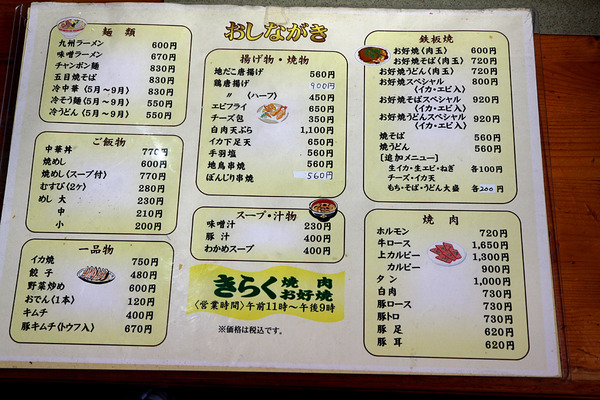 おしながき
麺類
九州ラーメン 600円
味噌ラーメン 670円
チャンポン麺 830円
五目焼そば 830円
冷中華（5月～9月） 830円
冷そう麺（5月～9月） 550円
冷うどん（5月～9月） 550円
ご飯物
中華丼 770円
焼めし 600円
焼めし（スープ付） 770円
むすび（2ケ） 280円
めし 大 230円
中 210円
小 200円
一品物
イカ焼 750円
餃子 480円
野菜炒め 600円
おでん（1本） 120円
キムチ 400円
豚キムチ（トウフ入） 670円
揚げ物・焼物
地だこ唐揚げ 560円
鶏唐揚げ 900円
〃（ハーフ） 450円
エビフライ 650円
チーズ包 350円
白肉天ぷら 1,100円
イカ下足天 650円
手羽塩 560円
地鳥串焼 560円
ぼんじり串焼 560円
スープ・汁物
味噌汁 230円
豚汁 400円
わかめスープ 400円
きらく 焼肉 お好焼
〈営業時間〉午前11時～午後9時
※価格は税込です。
鉄板焼
お好焼（肉玉） 600円
お好焼そば（肉玉） 720円
お好焼うどん（肉玉） 720円
お好焼スペシャル 800円
（イカ・エビ入）
お好焼そばスペシャル 920円
（イカ・エビ入）
お好焼うどんスペシャル 920円
（イカ・エビ入）
焼そば 560円
焼うどん 560円
［追加メニュー］
生イカ・生エビ・ねぎ 各100円
チーズ・イカ天
もち・そば・うどん大盛 各200円
焼肉
ホルモン 720円
牛ロース 1,650円
上カルビー 1,300円
カルビー 900円
タン 1,000円
白肉 730円
豚ロース 730円
豚トロ 730円
豚足 620円
豚耳 620円